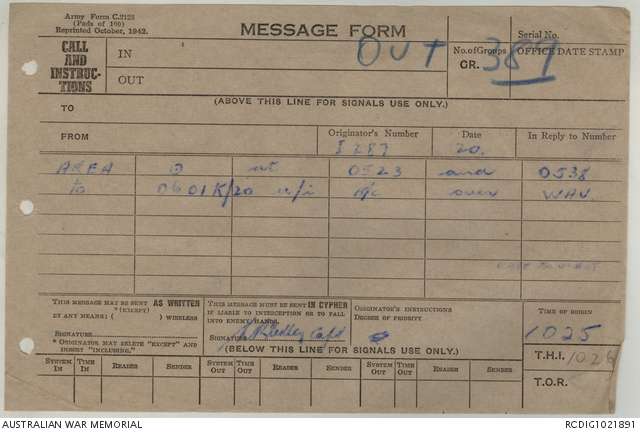 Army Form C.2128
(Pads of 100)
Reprinted October, 1942.
MESSAGE FORM
Serial No.
CALL AND INSTRUC-TIONS
IN
OUT
OUT
No. of Groups
GR. 387
OFFICE DATE STAMP
(ABOVE THIS LINE FOR SIGNALS USE ONLY.)
TO
FROM
Originator's Number
8287
Date
20.
In Reply to Number
AREA at 0523 and 0538
to 0601K/20 a/c over WAU.
THIS MESSAGE MAY BE SENT AS WRITTEN
(EXCEPT)
BY ANY MEANS: ( ) WIRELESS
SIGNATURE
* ORIGINATOR MAY DELETE "EXCEPT" AND INSERT "INCLUDING."
THIS MESSAGE MUST BE SENT IN CYPHER
IF LIABLE TO INTERCEPTION OR TO FALL INTO ENEMY HANDS.
SIGNATURE Capt
ORIGINATOR'S INSTRUCTIONS
DEGREE OF PRIORITY
TIME OF ORIGIN
1025
(BELOW THIS LINE FOR SIGNALS USE ONLY.)
T.H.I. 1026
T.O.R.
SYSTEM IN TIME IN READER SENDER SYSTEM OUT TIME OUT READER SENDER SYSTEM OUT TIME OUT READER SENDER
AUSTRALIAN WAR MEMORIAL
RCDIG1021891